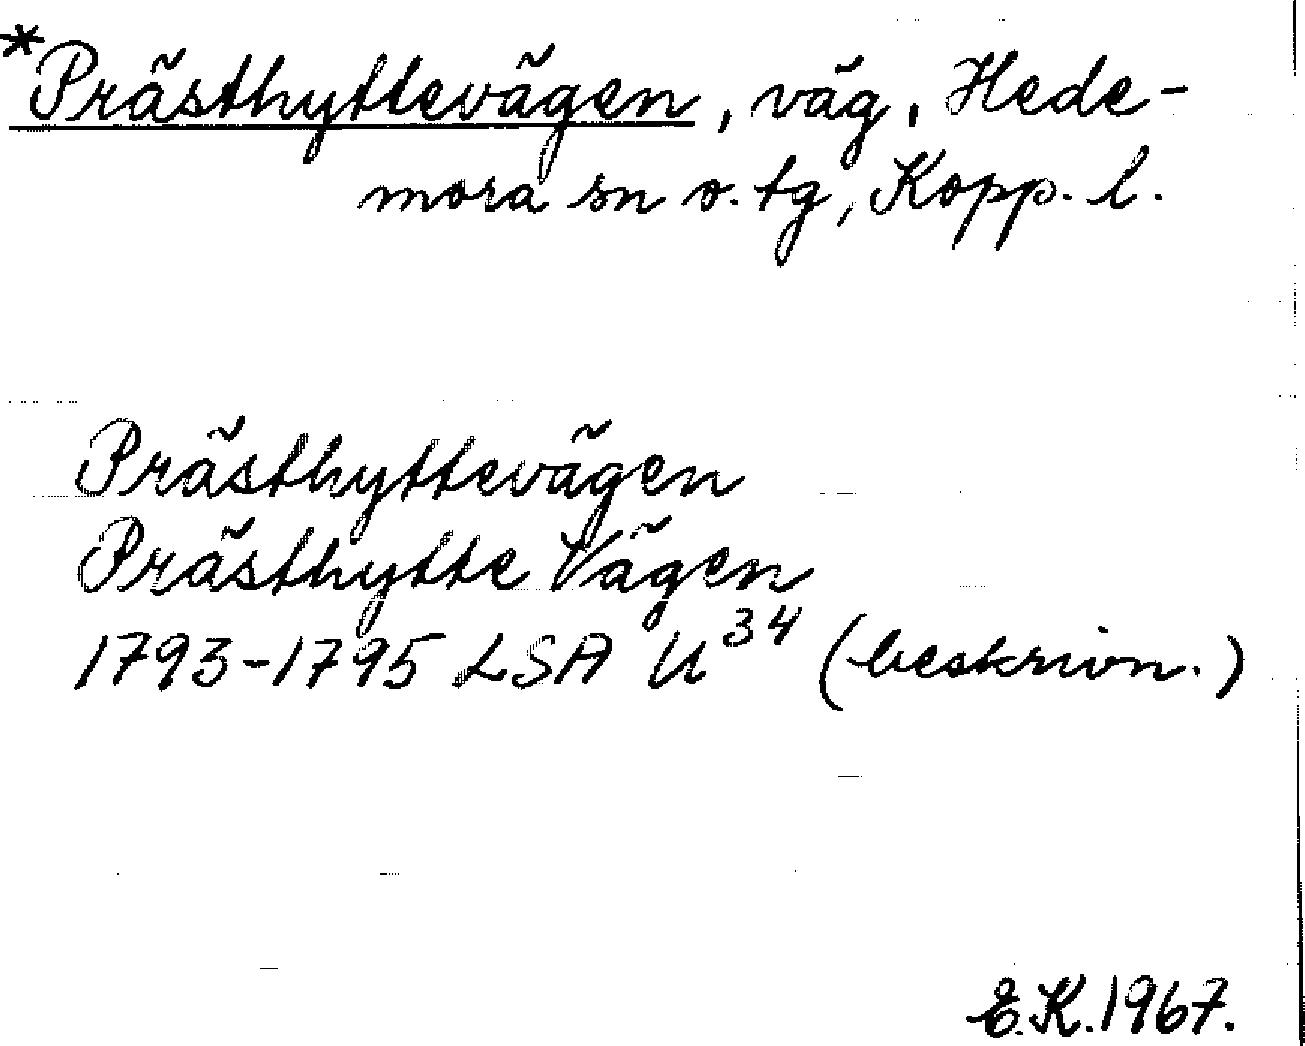 *Prästhyttevägen, väg, Hede-
mora sn o. tg, Kopp. l.
Prästhyttevägen
Prästhytte Vägen
1793-1795 LSA U³⁴ (beskrivn.)
E.K. 1967.